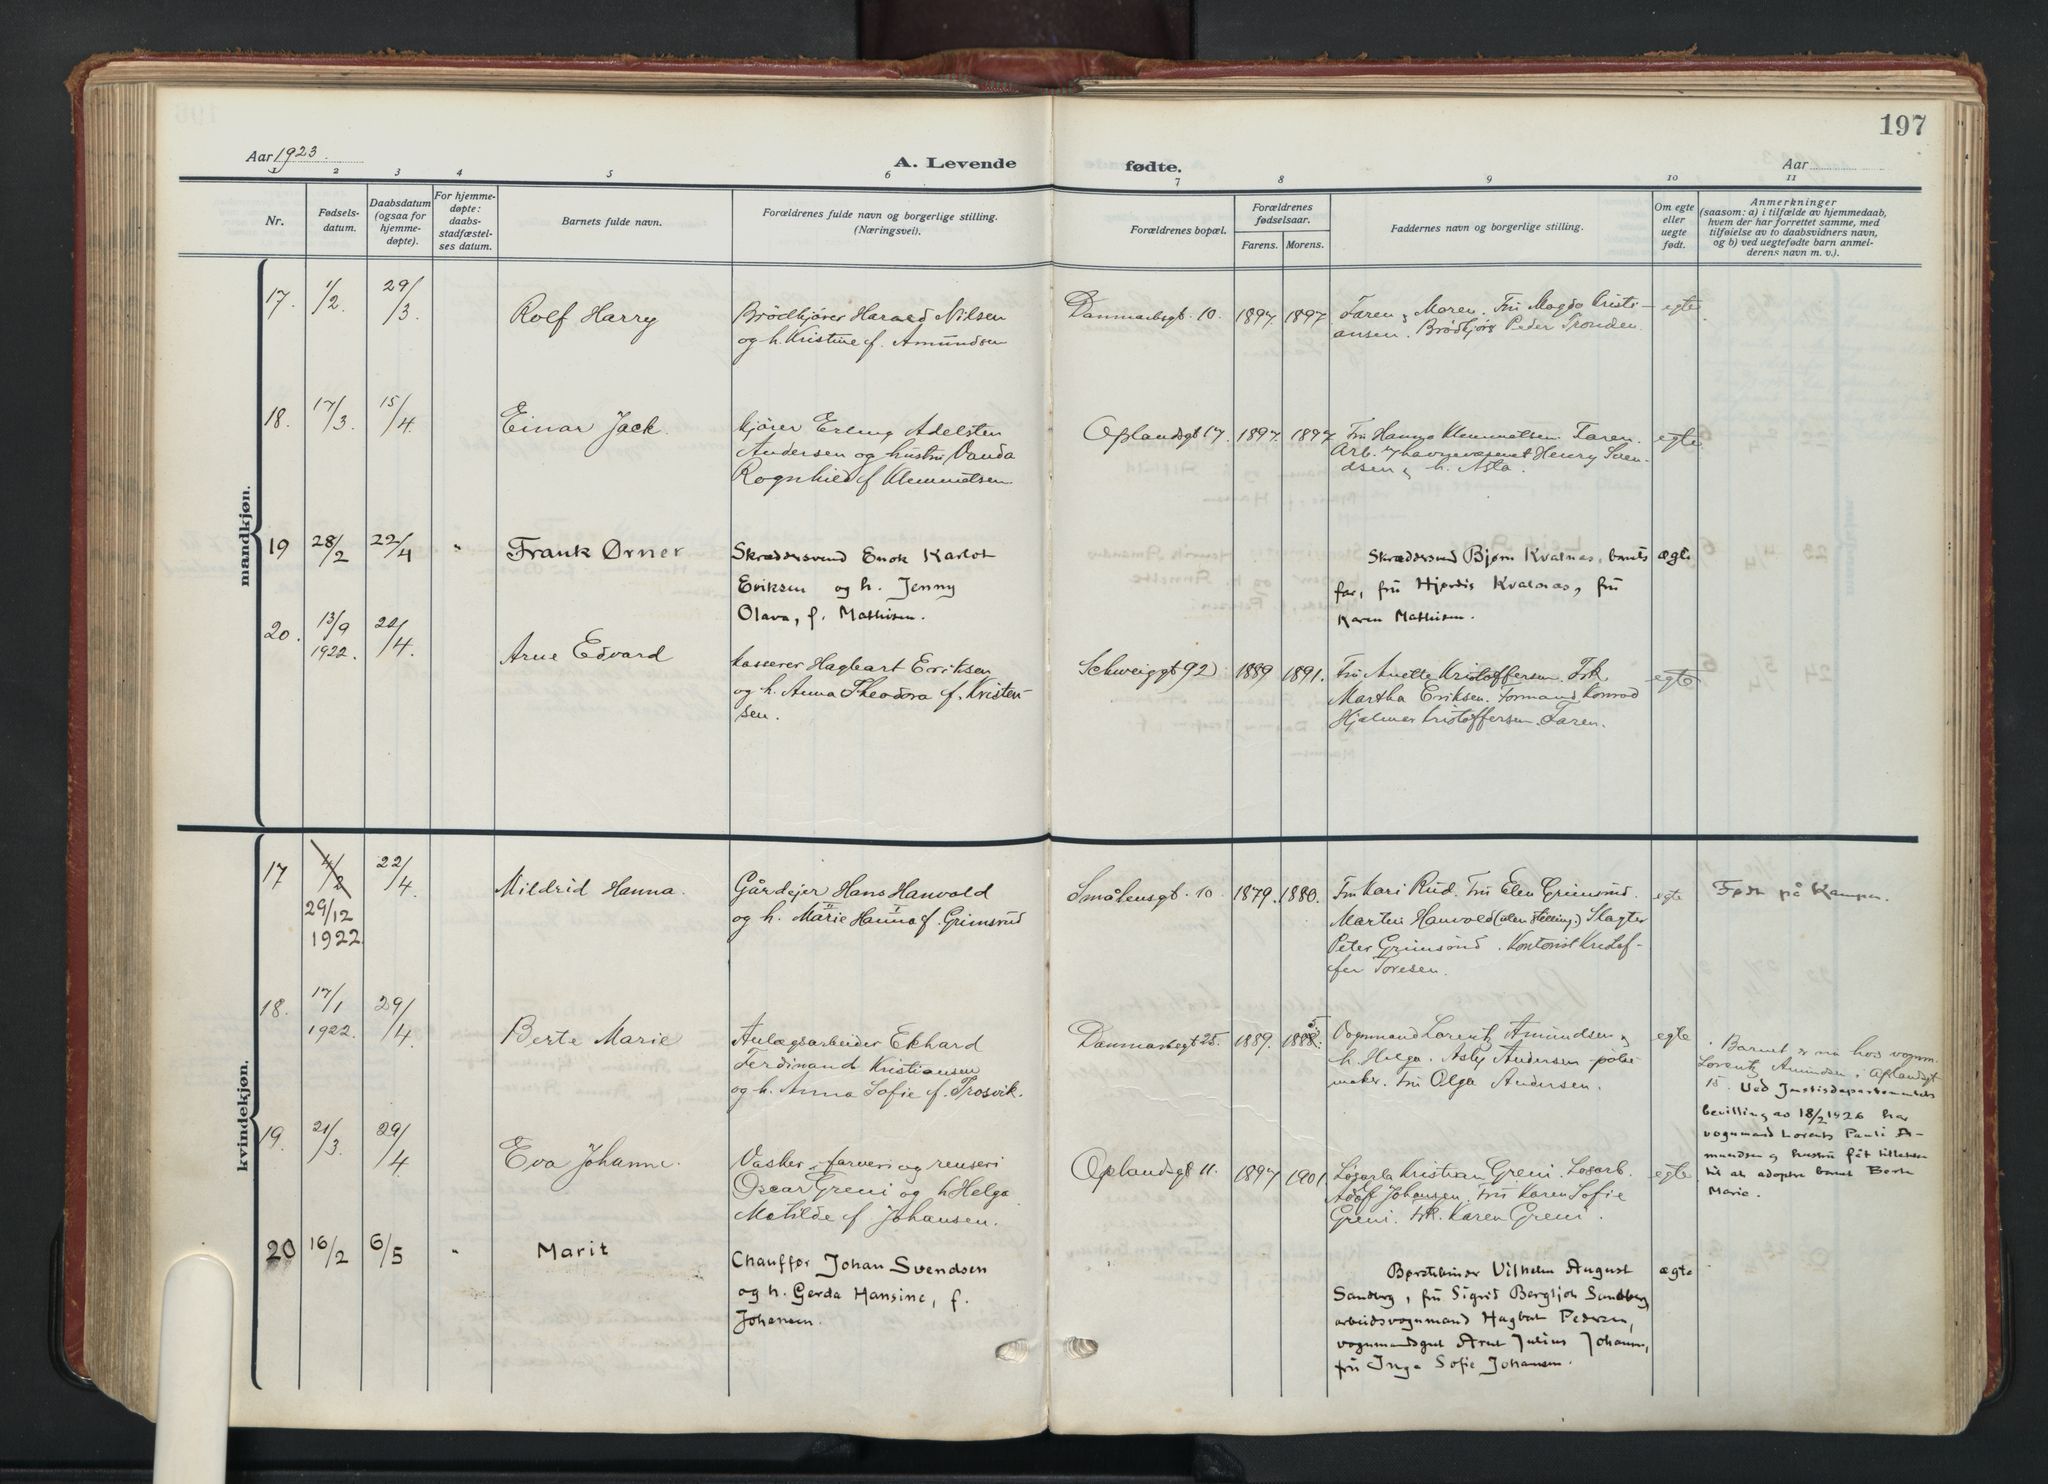 197
Aar 1923.
A. Levende
fødte.
Aar
1 2 3 4 5 6 7 8 9 10 11
Nr.
Fødsels-
datum.
Daabsdatum
(ogsaa for
hjemme-
døpte).
For hjemme-
døpte:
daabs-
stadfæstel-
ses datum.
Barnets fulde navn.
Forældrenes fulde navn og borgerlige stilling.
(Næringsvei).
Forældrenes bopæl.
Forældrenes
fødselsaar.
Farens. Morens.
Faddernes navn og borgerlige stilling.
Om egte
eller
uegte
født.
Anmerkninger
(saasom: a) i tilfælde av hjemmedaab,
hvem der har forrettet samme, med
tilføielse av to daabsvidners navn,
og b) ved uegtefødte barn anmel-
derens navn m. v.).
mandkjøn.
17. 1/2. 29/3.
Rolf Harry
Brödkjører Harald Nilsen
og h. Kristine f. Amundsen
Danmarksgt. 10. 1897. 1897.
Faren, Moren. Fru Magda Kristi-
ansen. Brödkjører Peder Tronden.
egte.
18. 17/3. 15/4.
Einar Jack.
kjører Erling Adelsten
Andersen og hustru Vanda
Ragnhild f Klemmetsen
Oplandsgt 17. 1897. 1897.
Fru Hanna Klemmetsen. Faren.
Arb. v/havnevæsenet Henry Sven-
dsen, h. Asta.
egte
19 28/2 22/4 "
Frank Ørner
Skræddersvend Enok Karlot
Eriksen og h. Jenny
Olava, f. Mathisen.
Skræddersvend Bjørn Kvalnas, barnets
far, fru Hjørdis Kvalnas, fru
Karen Mathisen.
ægte
20. 13/9 1922. 22/4.
Arne Edvard
kasserer Hagbart Eriksen
og h. Anna Theodora f. Kristen-
sen.
Schweiggt 92) 1889 1891.
Fru Anette Kristoffersen. Frk.
Martha Eriksen. Formand Konrad
Hjalmar Kristoffersen. Faren.
egte
kvindekjøn.
17 4/2 29/12 1922. 22/4.
Mildrid Hanna.
Gårdejer Hans Hanvold
og h. Marie Hanna f. Grimsrud
II I
Smålensgt. 10 1879. 1880.
Fru Kari Rud. Fru Elen Grimsrud.
Martin Hanvold (uten stilling.) Slagter
Peter Grimsrud. Kontorist Kristof-
fer Toresen.
egte
Født på Kampen.
18. 17/1 1922. 29/4.
Berte Marie
Anlægsarbeider Ekhard
Ferdinand Kristiansen
og h. Anna Sofie f. Trosvik.
Danmarksgt 25. 1889. 1888.
Vognmand Lorentz Amundsen,
h. Helga. Asly Andersen
maker. Fru Olga Andersen.
egte
Barnet er nu hos vognm.
Lorentz Amundsen, Oplandsgt
15. Ved Justisdepartementets
bevilling av 18/2 1926 har
vognmand Lorentz Pauli A-
mundsen og hustru fåt tillatelse
til at adoptere barnet Berte
Marie.
19. 21/3. 29/4
Eva Johanne.
Vasker, farveri og renseri
Oscar Greni og h Helga
Matilde f Johansen.
Oplandsgt 11. 1897 1901.
Løsarb. Kristian Greni. Løsarb.
Adolf Johansen. Fru Karen Sofie
Greni. Frk. Karen Greni.
egte
20 16/2 6/5 "
Marit
Chauffør Johan Svendsen
og h. Gerda Hansine, f.
Johansen.
Børstebinder Vilhelm August
Sandberg, fru Sigrid Bergljot Sandberg,
arbeidsvognmand Hagbart Pedersen,
vognmandsgut Arnt Julius Johansen,
fru Inga Sofie Johansen.
ægte